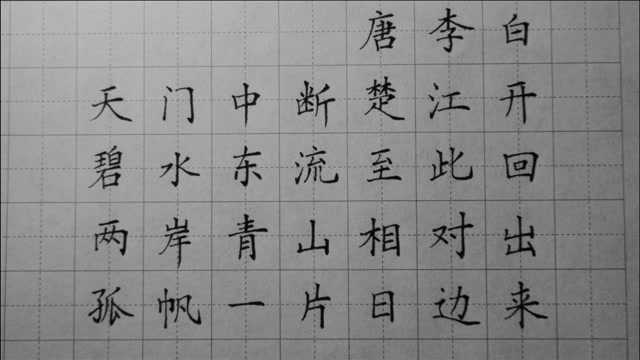 唐李白
天门中断楚江开
碧水东流至此回
两岸青山相对出
孤帆一片日边来